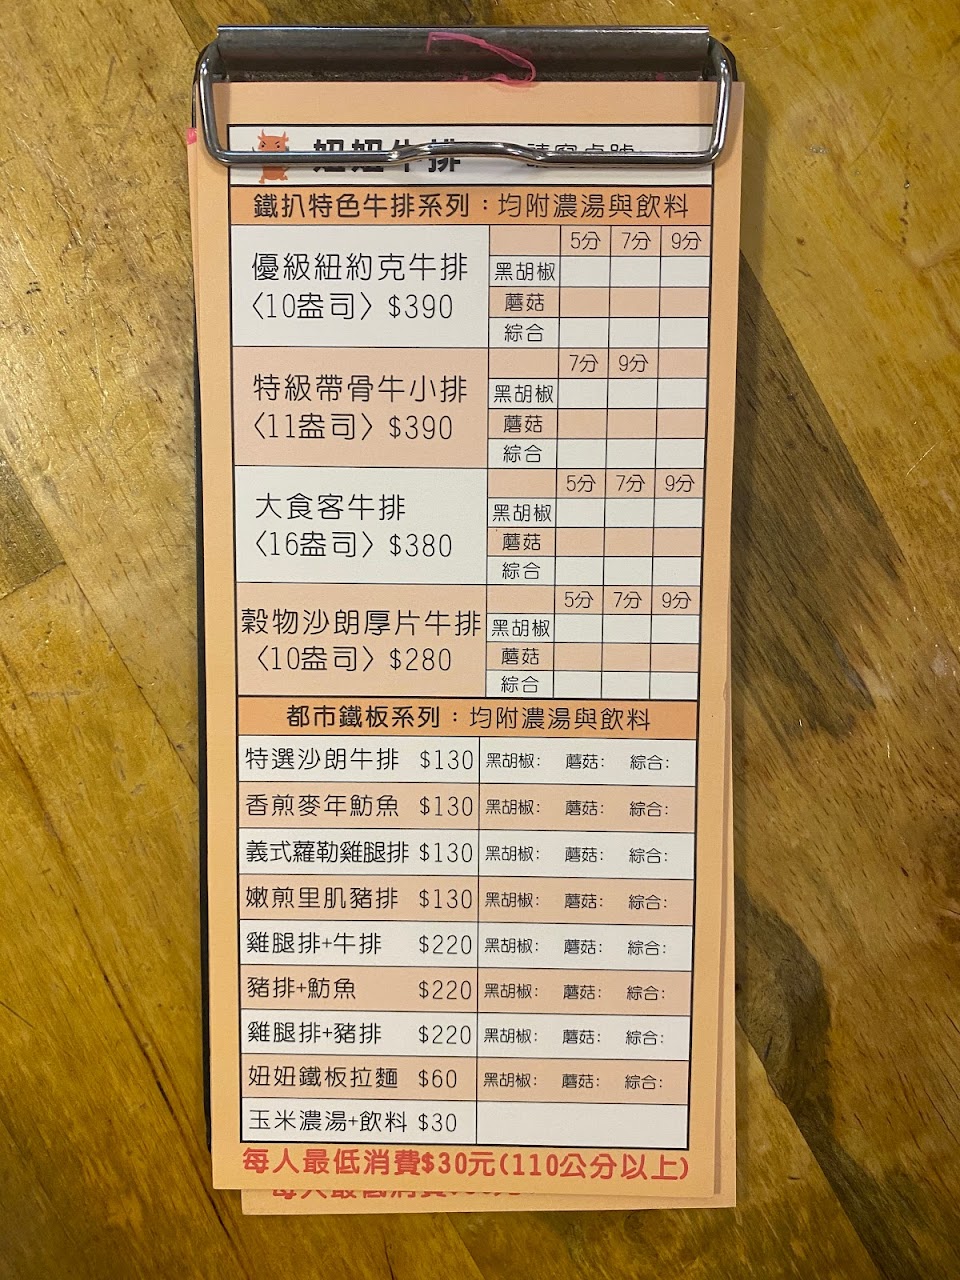 妞妞牛排 請寫桌號
鐵扒特色牛排系列：均附濃湯與飲料
5分 7分 9分
優級紐約克牛排
〈10盎司〉$390
黑胡椒
蘑菇
綜合
7分 9分
特級帶骨牛小排
〈11盎司〉$390
黑胡椒
蘑菇
綜合
5分 7分 9分
大食客牛排
〈16盎司〉$380
黑胡椒
蘑菇
綜合
5分 7分 9分
穀物沙朗厚片牛排
〈10盎司〉$280
黑胡椒
蘑菇
綜合
都市鐵板系列：均附濃湯與飲料
特選沙朗牛排 $130 黑胡椒: 蘑菇: 綜合:
香煎麥年魴魚 $130 黑胡椒: 蘑菇: 綜合:
義式蘿勒雞腿排 $130 黑胡椒: 蘑菇: 綜合:
嫩煎里肌豬排 $130 黑胡椒: 蘑菇: 綜合:
雞腿排+牛排 $220 黑胡椒: 蘑菇: 綜合:
豬排+魴魚 $220 黑胡椒: 蘑菇: 綜合:
雞腿排+豬排 $220 黑胡椒: 蘑菇: 綜合:
妞妞鐵板拉麵 $60 黑胡椒: 蘑菇: 綜合:
玉米濃湯+飲料 $30
每人最低消費$30元(110公分以上)